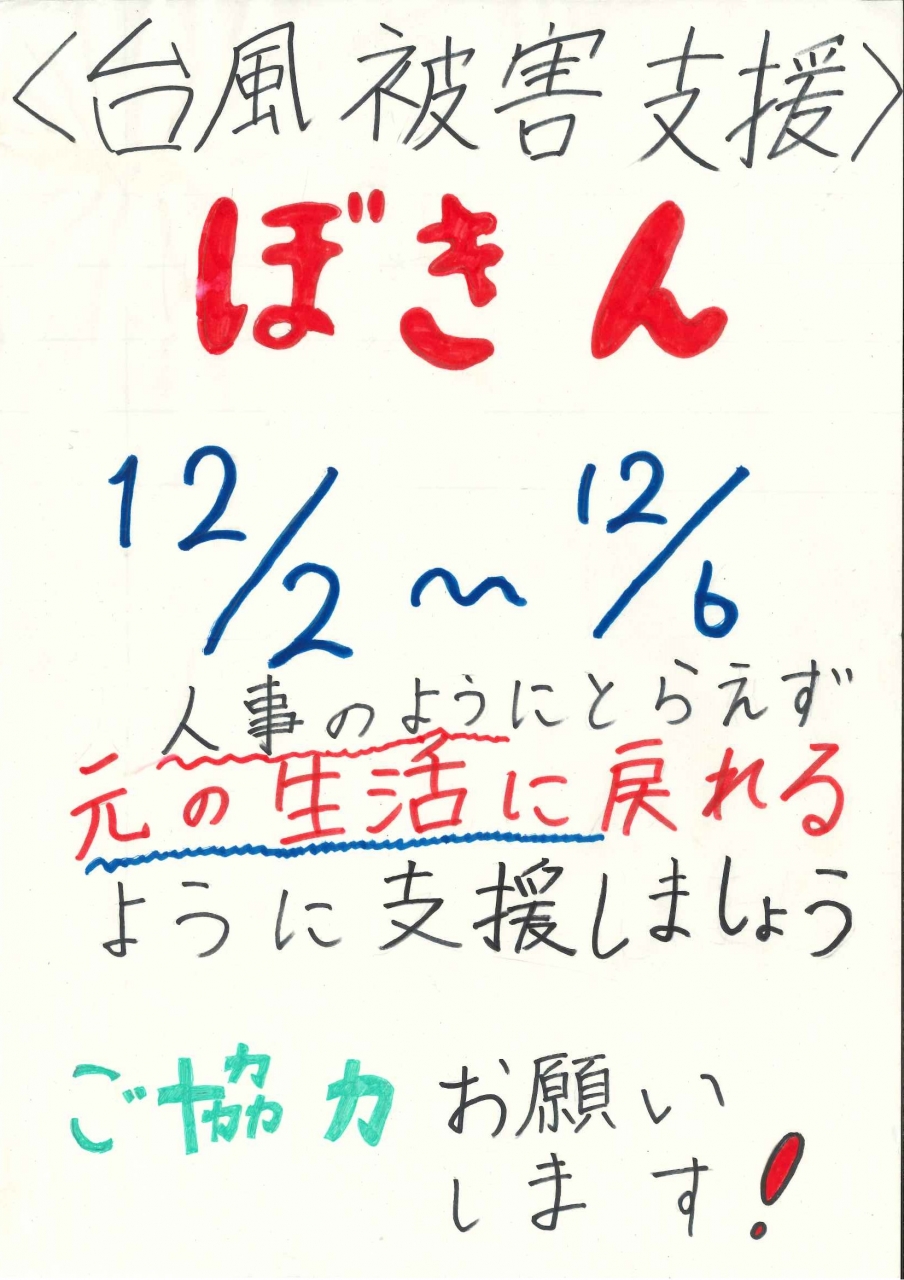 〈台風被害支援〉
ぼきん
12/2～12/6
人事のようにとらえず
元の生活に戻れる
ように支援しましょう
ご協力お願い
します!